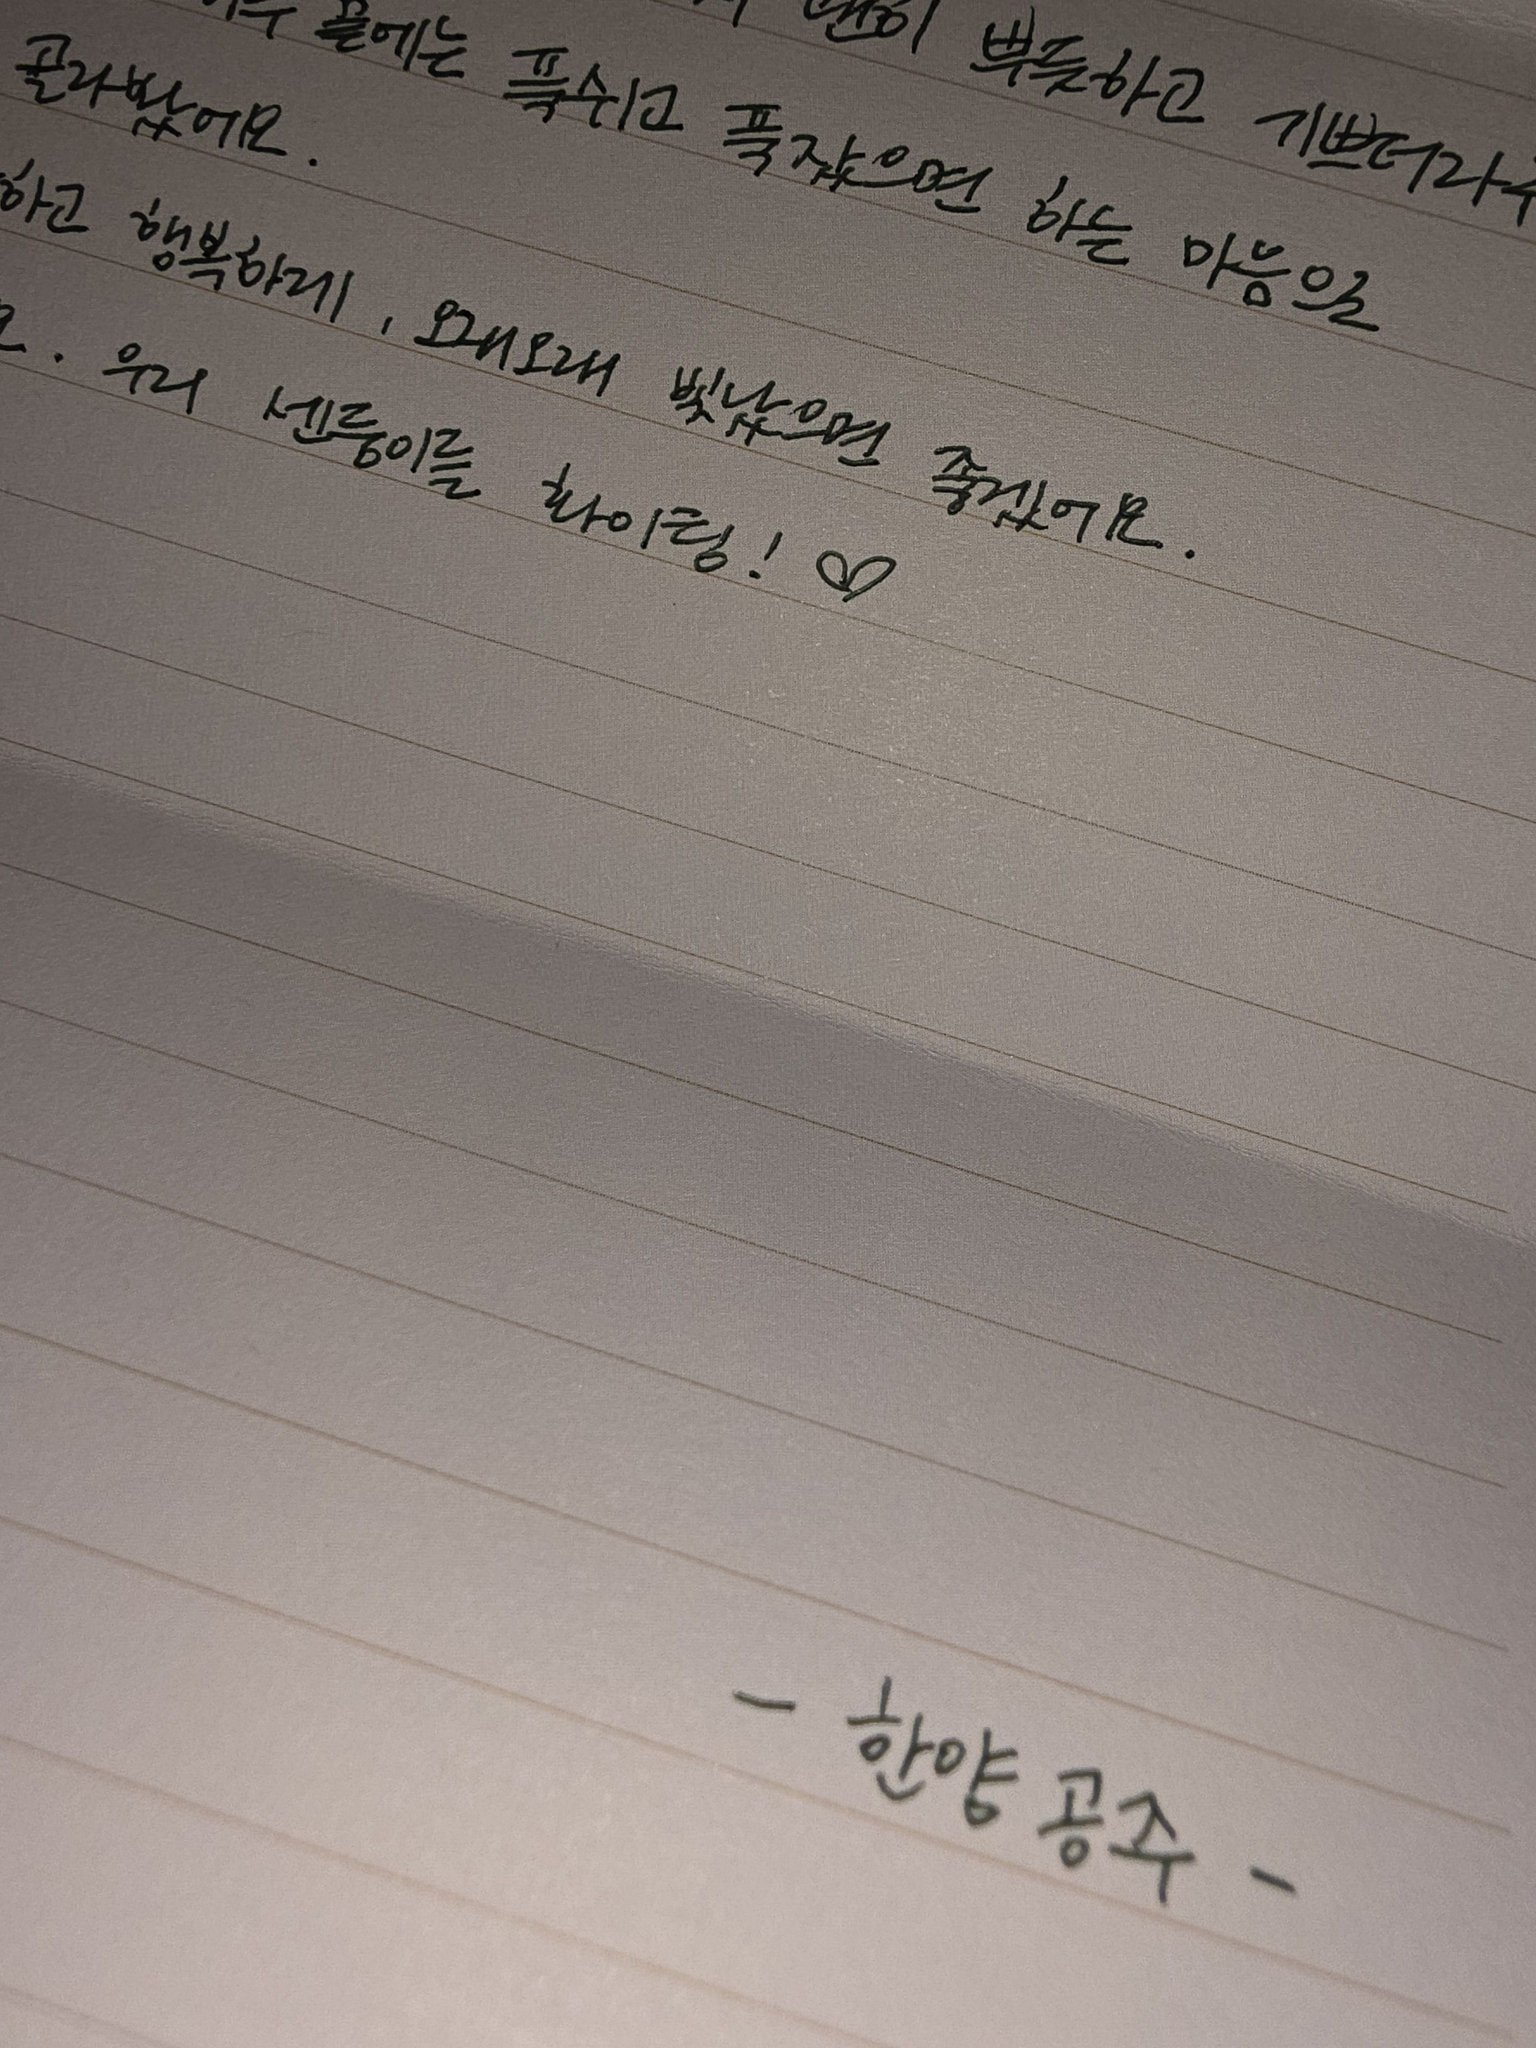 괜히 뿌듯하고 기쁘더라구
하루 끝에는 푹쉬고 푹잤으면 하는 마음을
골라봤어요.
하고 행복하게, 오래오래 빛났으면 좋겠어요.
요. 우리 센둥이들 화이팅! ♡
- 한양 공주 -